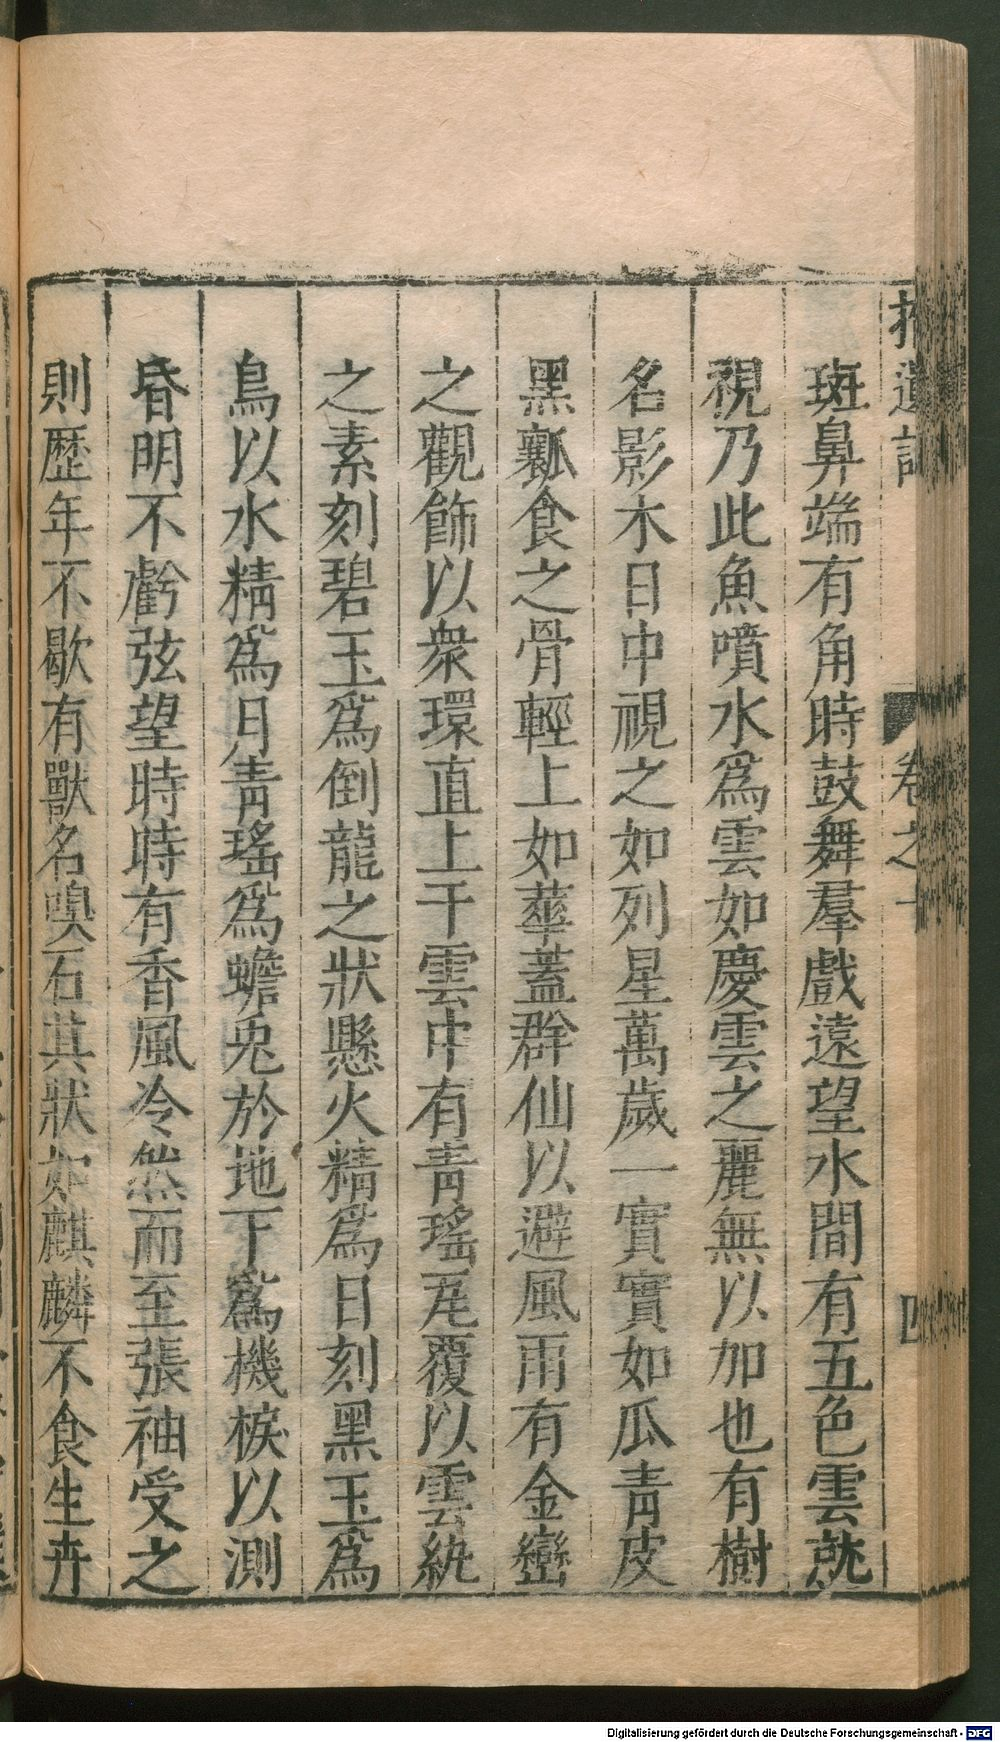 拾遺記
卷之十
四
斑鼻端有角時鼓舞羣戲遠望水間有五色雲就
視乃此魚噴水爲雲如慶雲之麗無以加也有樹
名影木日中視之如列星萬歲一實實如瓜青皮
黑瓤食之骨輕上如華蓋群仙以避風雨有金巒
之觀飾以衆環直上干雲中有青瑤瓦覆以雲紈
之素刻碧玉爲倒龍之狀懸火精爲日刻黑玉爲
烏以水精爲月青瑤爲蟾兎於地下爲機棙以測
昏明不虧弦望時時有香風冷然而至張袖受之
則歷年不歇有獸名嗅石其狀如麒麟不食生卉
Digitalisierung gefördert durch die Deutsche Forschungsgemeinschaft - DFG